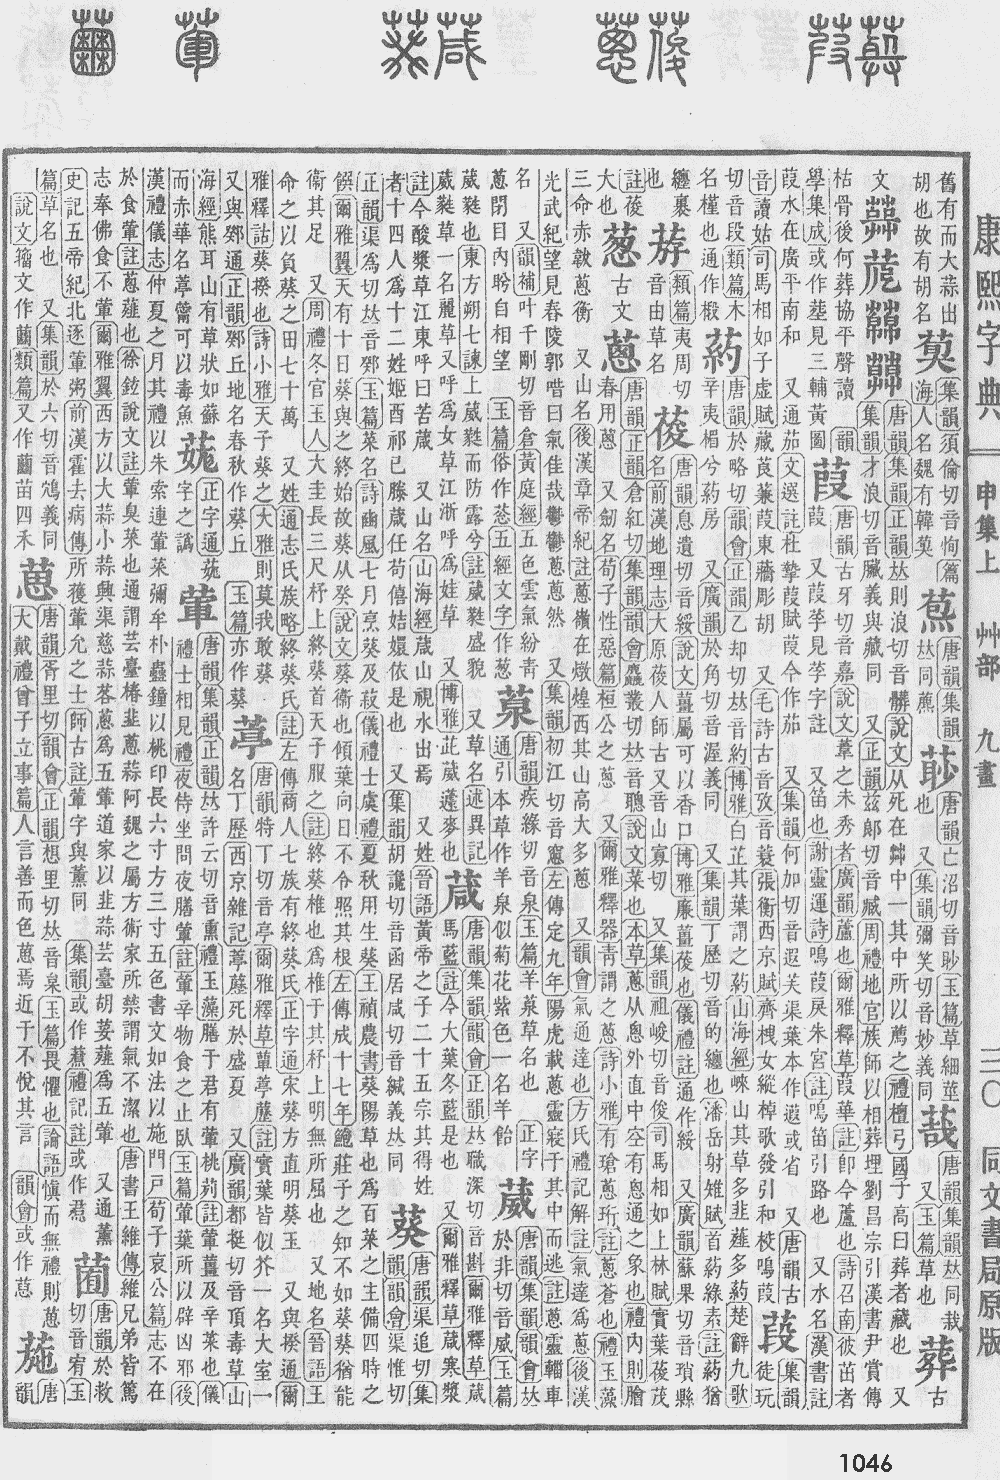 康熙字典 申集上 艸部 九畫 三〇 同文書局原版
舊有而大蒜出
胡也故有胡名
集韻須倫切音恂
唐韻集韻
唐韻亡沼切音眇玉篇草細莖
也 又集韻彌笑切音妙義同
唐韻集韻𠀤同栽
又玉篇草也
葬 古文
唐韻集韻正韻𠀤則浪切音髒說文从死在茻中一其中所以薦之禮檀弓國子高曰葬者藏也 又
集韻才浪切音臟義與藏同 又正韻兹郞切音臧周禮地官族師以相葬埋劉昌宗引漢書尹賞傳
枯骨後何葬協平聲讀
葭 唐韻古牙切音嘉說文葦之未秀者廣韻蘆也爾雅釋草葭華註卽今蘆也詩召南彼茁者
葭 又葭莩見莩字註 又笛也謝靈運詩鳴葭戾朱宮註鳴笛引路也 又水名漢書註
葭水在廣平南和 又通茄文選註杜摯葭賦葭今作茄 又集韻何加切音遐芙渠葉本作蕸或省 又唐韻古
音讀姑司馬相如子虛賦藏莨蒹葭東蘠彫胡 又毛詩古音攷音葭張衡西京賦齊栧女縱棹歌發引和校鳴葭
葮 集韻徒玩
切音段類篇木
名槿也通作椴
葯 唐韻於略切韻會正韻乙却切𠀤音約博雅白芷其葉謂之葯山海經崍山其草多韭薤多葯楚辭九歌
辛夷楣兮葯房 又廣韻於角切音渥義同 又集韻丁歷切音的纏也潘岳射雉賦首葯綠素註葯猶
纏裹
也
類篇夷周切
音由草名
葰 唐韻息遺切音綏說文薑屬可以香口博雅廉薑葰也儀禮註通作綏 又廣韻蘇果切音瑣縣
名前漢地理志大原葰人師古又音山寡切 又集韻祖峻切音俊司馬相如上林賦實葉葰茂
註葰
大也
葱 古文
蔥 唐韻正韻倉紅切集韻韻會麤叢切𠀤音聰說文菜也本草蔥从悤外直中空有悤通之象也禮內則膾
春用蔥 又劒名荀子性惡篇桓公之蔥 又爾雅釋器靑謂之蔥詩小雅有瑲蔥珩註蔥蒼也禮玉藻
三命赤韍蔥衡 又山名後漢章帝紀註蔥嶺在燉煌西其山高大多蔥 又韻會氣通達也方氏禮記解註氣達爲蔥後漢
光武紀望見舂陵郭唶曰氣佳哉鬱鬱蔥蔥然 又集韻初江切音窻左傳定九年陽虎載蔥靈寢于其中而逃註蔥靈輜車
名 又韻補叶千剛切音倉黃庭經五色雲氣紛靑
蔥閉目內眄自相望 玉篇俗作葱五經文字作䓗
唐韻疾緣切音泉玉篇羊葲草名也
通引本草作羊泉似菊花紫色一名羊飴
葳 唐韻集韻韻會𠀤
於非切音威玉篇
葳蕤也東方朔七諫上葳蕤而防露兮註葳蕤盛貌 又草名述異記
葳蕤草一名麗草又呼爲女草江浙呼爲娃草 又博雅此葳蘧麥也
葴 唐韻集韻韻會正韻𠀤職深切音斟爾雅釋草葴
馬藍註今大葉冬藍是也 又爾雅釋草葴寒漿
註今酸漿草江東呼曰苦葴 又山名山海經葴山視水出焉 又姓晉語黃帝之子二十五宗其得姓
者十四人爲十二姓姬酉祁己滕葴任荀僖姞嬛依是也 又集韻胡讒切音函居咸切音緘義𠀤同
葵 唐韻渠追切集
韻韻會渠惟切
正韻渠爲切𠀤音鄈玉篇菜名詩豳風七月亨葵及菽儀禮士虞禮夏秋用生葵王禎農書葵陽草也爲百菜之主備四時之
饌爾雅翼天有十日葵與之終始故葵从癸說文葵衞也傾葉向日不令照其根左傳成十七年鮑莊子之知不如葵葵猶能
衞其足 又周禮冬官玉人大圭長三尺杼上終葵首天子服之註終葵椎也爲椎于其杼上明無所屈也 又地名晉語王
命之以負葵之田七十萬 又姓通志氏族略終葵氏註左傳商人七族有終葵氏正字通宋葵方直明葵玉 又與揆通爾
雅釋詁葵揆也詩小雅天子葵之大雅則莫我敢葵
又與鄈通正韻鄈丘地名春秋作葵丘 玉篇亦作葵
葶 唐韻特丁切音亭爾雅釋草蕇葶藶註實葉皆似芥一名大室一
名丁歷西京雜記葶藶死於盛夏 又廣韻都挺切音頂毒草山
海經熊耳山有草狀如蘇
而赤華名葶薴可以毒魚
正字通葹
字之譌
葷 唐韻集韻正韻𠀤許云切音熏禮玉藻膳于君有葷桃茢註葷薑及辛菜也儀
禮士相見禮夜侍坐問夜膳葷註葷辛物食之止臥玉篇葷葉所以辟凶邪後
漢禮儀志仲夏之月其禮以朱索連葷菜彌牟朴蠱鐘以桃印長六寸方三寸五色書文如法以施門戸荀子哀公篇志不在
於食葷註蔥薤也徐鉉說文註葷臭菜也通謂芸臺椿韭蔥蒜阿魏之屬方術家所禁謂氣不潔也唐書王維傳維兄弟皆篤
志奉佛食不葷爾雅翼西方以大蒜小蒜興渠慈蒜茖蔥爲五葷道家以韭蒜芸臺胡荽薤爲五葷 又通薰
史記五帝紀北逐葷粥前漢霍去病傳所獲葷允之士師古註葷字與薰同 集韻或作䓧禮記註或作焄
唐韻於救
切音宥玉
篇草名也 又集韻於六切音鴪義同
說文籀文作𧁾類篇又作䕍苗四禾
葸 唐韻胥里切韻會正韻想里切𠀤音枲玉篇畏懼也論語愼而無禮則葸
大戴禮曾子立事篇人言善而色葸焉近于不悅其言 韻會或作諰
葹 唐
韻
1046